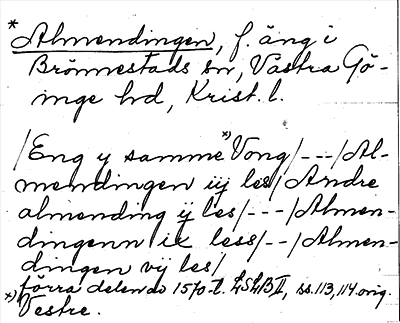 *Almendingen, f. äng i
Brönnestads sn, Västra Gö-
inge hd, Krist. l.
/Eng y samme *) Vong/---/Al-
mendingen iij les/Andre
almending ij les/---/Almen-
dingenn ix less/--/Almen-
dingen vij les/
förra delen do 1570-t. LSLB II, ss. 113, 114 orig.
*) Vestre.